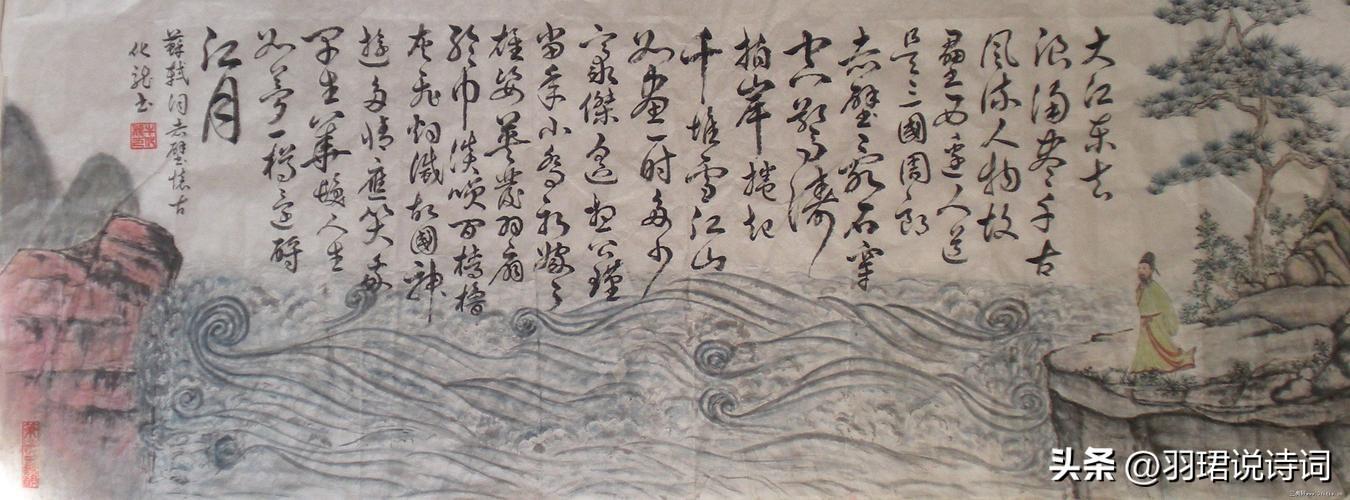 大江东去
浪淘尽千古
风流人物故
垒西边人道
是三國周郎
赤壁乱石穿
空驚濤
拍岸捲起
千堆雪江山
如画一时多少
豪傑遥想公瑾
当年小乔初嫁了
雄姿英发羽扇
纶巾谈笑间樯橹
灰飞烟灭故國神
遊多情應笑我
早生華髮人生
如夢一樽还酹
江月
蘇轼词赤壁懷古
化龙书
头条 @羽珺说诗词